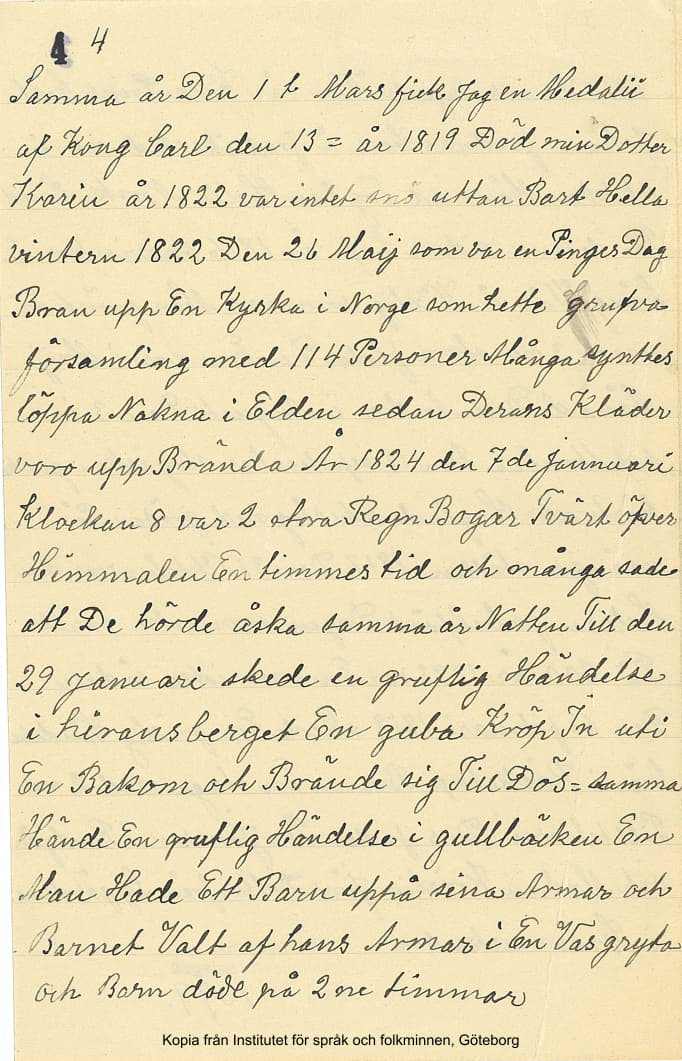 4 4
Samma år Den 1 t Mars fick Jag en Medalii
af Kong Carl den 13 = år 1819 Död min Dotter
Karin år 1822 var intet snö uttan Bart Hella
vintern 1822 Den 26 Maij som var en Pinges Dag
Bran upp En Kyrka i Norge som hette grufva
församling med 114 Personer Många synttes
löppa Nakna i Elden sedan Derans Kläder
voro upp Brända År 1824 den 7 de Jannuari
Klockan 8 var 2 stora Regn Bogar Tvärt öfver
Himmalen En timmes tid och många sade
att De hörde åska samma år Natten Till den
29 Januari skede en gruflig Händelse
i hiransberget En guba Kröp In uti
En Bakom och Brände sig Till Dös = samma
Hände En gruflig Händelse i gullbäcken En
Man Hade Ett Barn uppå sina Armar och
Barnet Valt af hans Armar i En Vas gryta
och Barn döde på 2 ne timmar
Kopia från Institutet för språk och folkminnen, Göteborg